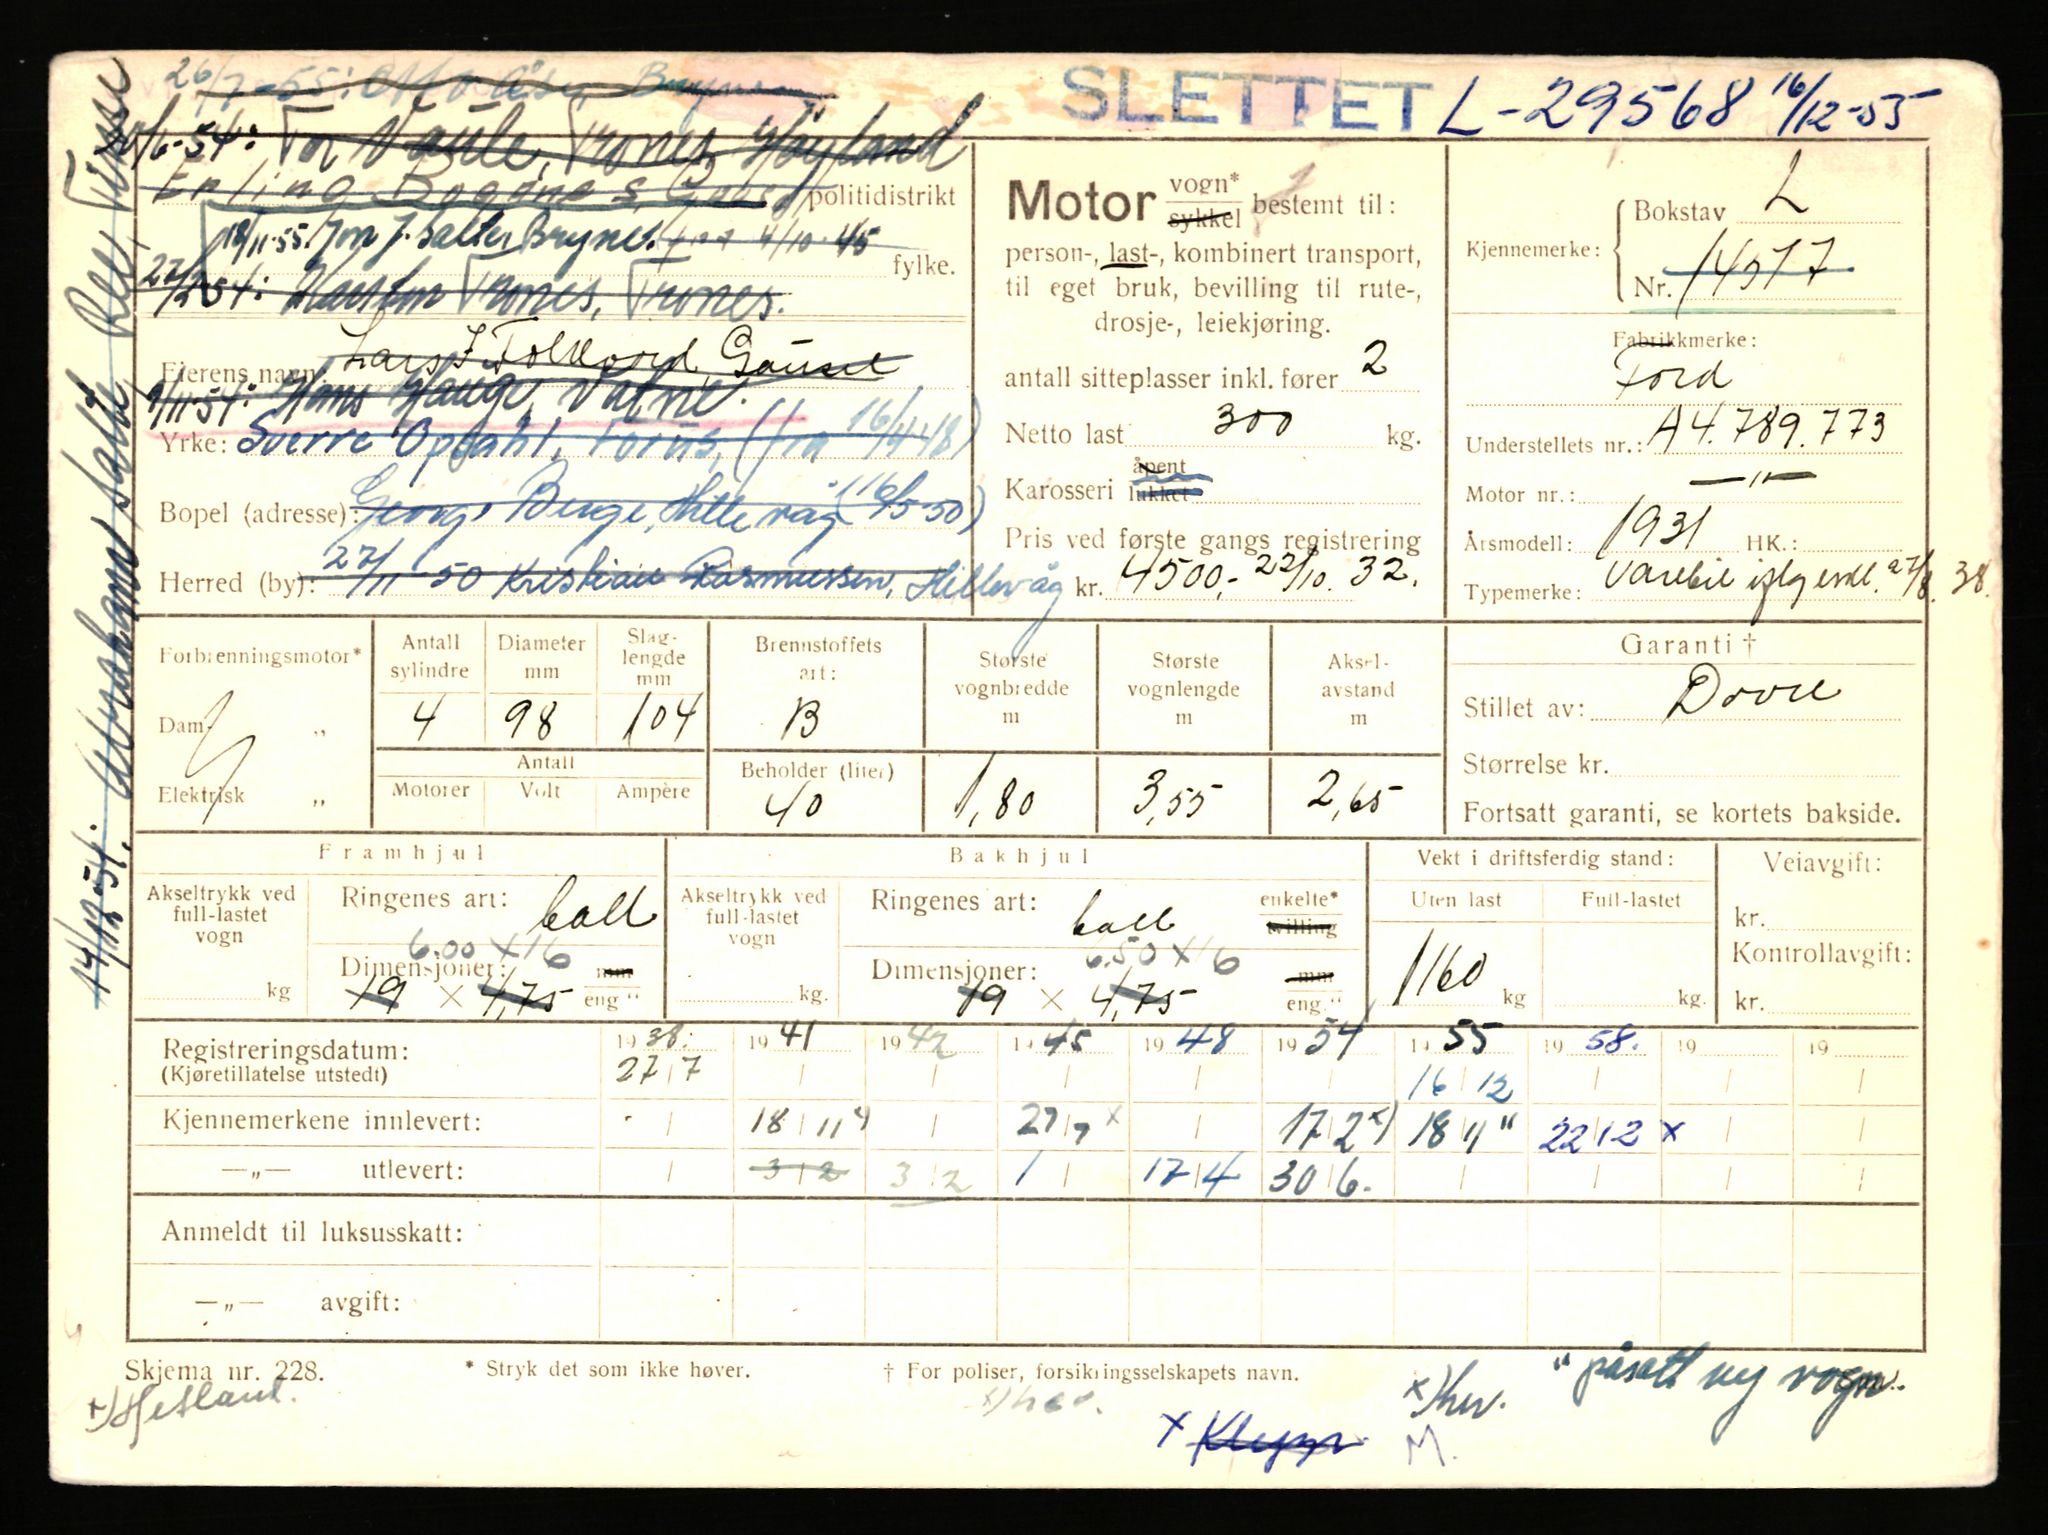 26/7-55:
SLETTET L-29568 16/12-55
30/6-54: Tor Vaule, Trones, Høyland
Erling Bognes,
politidistrikt
18/11-55. Jon J. Salte, Bryne. fra 4/10-45
fylke.
22/2-54: Karsten Trones, Trones.
Lars J. Folkvord, Gausel
Eierens navn:
9/11-54: Hans Hauge, Vatne.
Yrke: Sverre Opdahl, Forus, (fra 16/4-48)
Bopel (adresse): Georg Berge, Hillevåg (16/5-50)
Herred (by): 27/11-50 Kristian Rasmussen, Hillevåg
14/12-54: Salte, Ree, Time
Motor vogn* sykkel bestemt til:
person-, last-, kombinert transport,
til eget bruk, bevilling til rute-,
drosje-, leiekjøring.
antall sitteplasser inkl. fører 2
Netto last 300 kg.
Karosseri åpent lukket
Pris ved første gangs registrering
kr. 4500,- 22/10. 32.
Kjennemerke: Bokstav L
Nr. 14577
Fabrikkmerke:
Ford
Understellets nr.: A4.789.773
Motor nr.: —"—
Årsmodell: 1931 HK.:
Typemerke: Varebil iflg. 27/8. 38.
Forbrenningsmotor*
Dam- „
Elektrisk „
Antall sylindre 4
Diameter mm 98
Slaglengde mm 104
Antall
Motorer Volt Ampère
Brennstoffets art: B
Beholder (liter) 40
Største vognbredde m 1,80
Største vognlengde m 3,55
Akselavstand m 2,65
Garanti †
Stillet av: Dovre
Størrelse kr.
Fortsatt garanti, se kortets bakside.
Framhjul
Akseltrykk ved full-lastet vogn kg
Ringenes art: ball
6.00 x 16
Dimensjoner: 19 × 4,75 mm eng."
Bakhjul
Akseltrykk ved full-lastet vogn kg.
Ringenes art: ball enkelte* tvilling
6.50 x 16
Dimensjoner: 19 × 4,75 mm eng."
Vekt i driftsferdig stand:
Uten last Full-lastet
1160 kg kg.
Veiavgift:
kr.
Kontrollavgift:
kr.
Registreringsdatum: 1938. 1941 1942 1945 1948 1954 1955 1958. 19 19
(Kjøretillatelse utstedt) 27/7 16/12
Kjennemerkene innlevert: 18/11 27/7 x 17/2 x) 18/11 " 22/12 x
—„— utlevert: 3/2 3/2 17/4 30/6.
Anmeldt til luksusskatt:
—„— avgift:
Skjema nr. 228. * Stryk det som ikke høver. † For poliser, forsikringsselskapets navn.
+) Hetland. x) her. x Klepp x) her. M. " påsatt ny vogn.